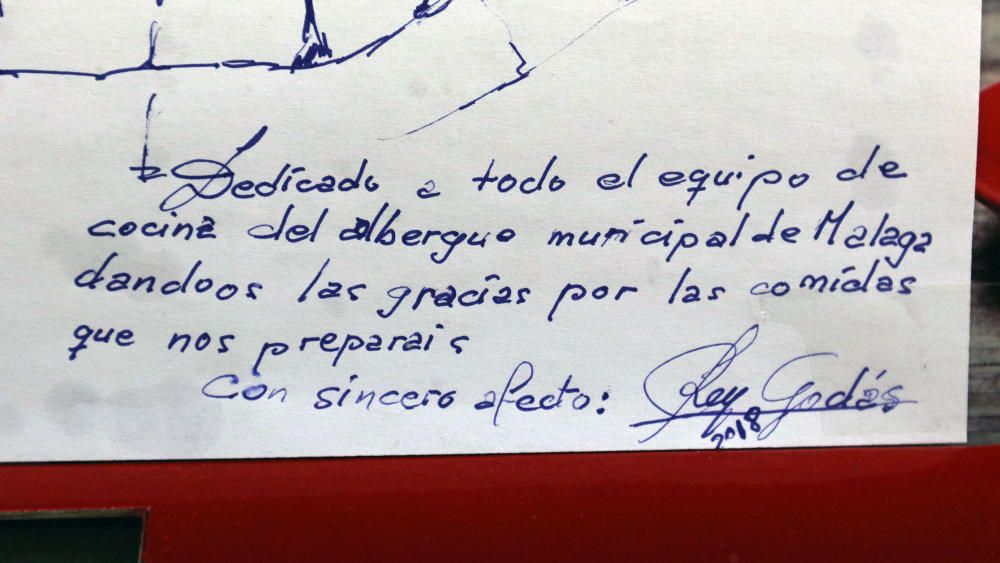 Dedicado a todo el equipo de
cocina del albergue municipal de Malaga
dandoos las gracias por las comidas
que nos preparais
Con sincero afecto: Rey Godás
2018